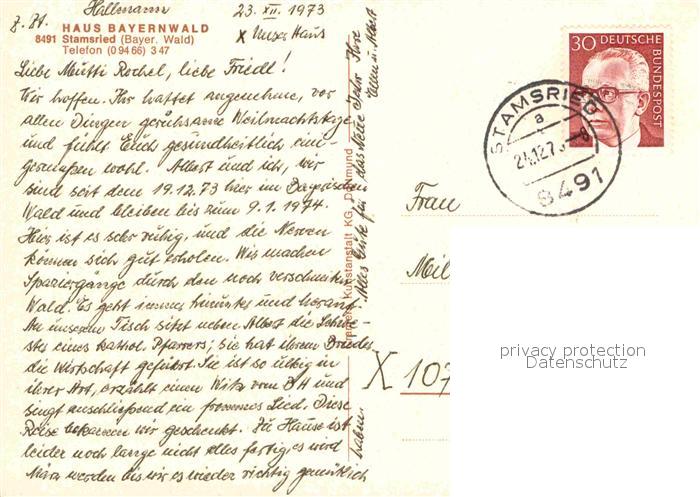 z. Zt. Hallmann
HAUS BAYERNWALD
8491 Stamsried (Bayer. Wald)
Telefon (0 94 66) 3 47
23. XII. 1973
x Unser Haus
Liebe Mutti Rochel, liebe Friedl!
Wir hoffen, Ihr hattet angenehme, vor
allen Dingen geruhsame Weihnachtstage
und fühlt Euch gesundheitlich eini-
germaßen wohl. Albert und ich, wir
sind seit dem 19.12.73 hier im Bayrischen
Wald und bleiben bis zum 9.1.1974.
Hier ist es sehr ruhig, und die Nerven
können sich gut erholen. Wir machen
Spaziergänge durch den noch verschneiten
Wald. Es geht immer hinunter und herauf.
An unserem Tisch sitzt neben Albert die Schwe-
ster eines kathol. Pfarrers; sie hat ihrem Bruder
die Wirtschaft geführt. Sie ist so ulkig in
ihrer Art, erzählt einen Witz vom BH und
singt anschließend ein frommes Lied. Diese
Reise bekamen wir geschenkt. Zu Hause ist
leider noch lange nicht alles fertig, es wird
März werden bis wir es wieder richtig gemütlich
haben. Alles Gute für das Neue Jahr Ihre
Ellen u. Albert
Kunstanstalt KG, Dortmund
30 DEUTSCHE
BUNDESPOST
STAMSRIED
a
24.12.73-8
8491
Frau
Mil
X 107
privacy protection
Datenschutz